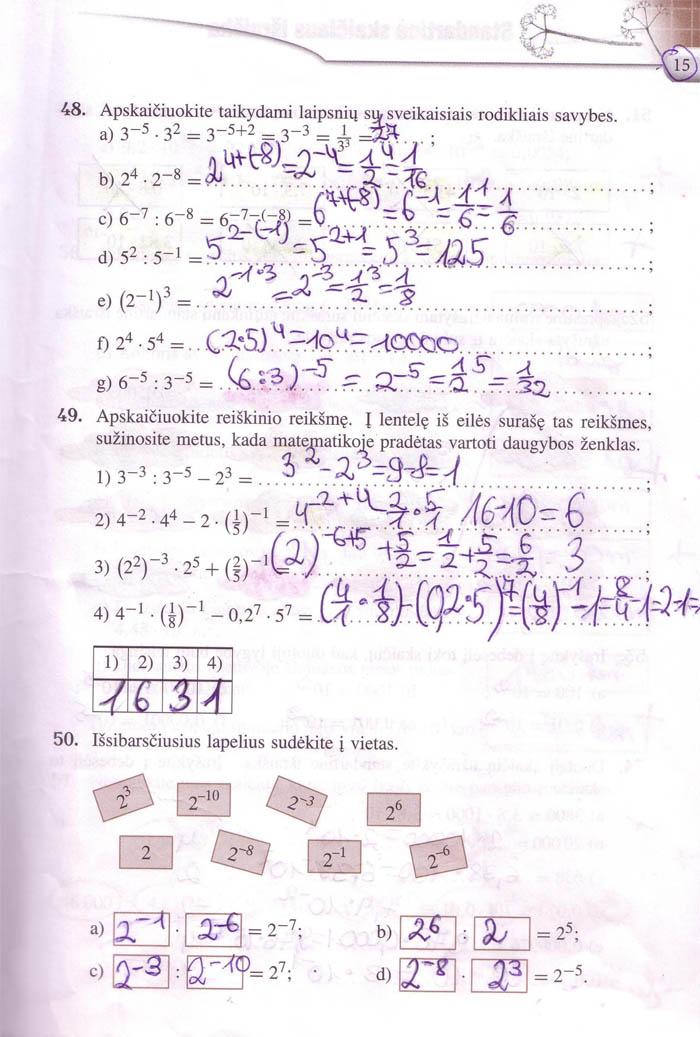 15
48. Apskaičiuokite taikydami laipsnių su sveikaisiais rodikliais savybes.
a) 3⁻⁵ · 3² = 3⁻⁵⁺² = 3⁻³ = 1/3³ = 1/27 ;
b) 2⁴ · 2⁻⁸ = 2⁴⁺⁽⁻⁸⁾ = 2⁻⁴ = 1/2⁴ = 1/16 ;
c) 6⁻⁷ : 6⁻⁸ = 6⁻⁷⁻⁽⁻⁸⁾ = 6⁷⁺⁽⁻⁸⁾ = 6⁻¹ = 1/6¹ = 1/6 ;
d) 5² : 5⁻¹ = 5²⁻⁽⁻¹⁾ = 5²⁺¹ = 5³ = 125 ;
e) (2⁻¹)³ = 2⁻¹·³ = 2⁻³ = 1/2³ = 1/8 ;
f) 2⁴ · 5⁴ = (2·5)⁴ = 10⁴ = 10000 ;
g) 6⁻⁵ : 3⁻⁵ = (6:3)⁻⁵ = 2⁻⁵ = 1/2⁵ = 1/32
49. Apskaičiuokite reiškinio reikšmę. Į lentelę iš eilės surašę tas reikšmes,
sužinosite metus, kada matematikoje pradėtas vartoti daugybos ženklas.
1) 3⁻³ : 3⁻⁵ − 2³ = 3² − 2³ = 9-8 = 1 ;
2) 4⁻² · 4⁴ − 2 · (1/5)⁻¹ = 4⁻²⁺⁴ − 2/1 · 5/1 16-10 = 6 ;
3) (2²)⁻³ · 2⁵ + (2/5)⁻¹ = (2)⁻⁶⁺⁵ + 5/2 = 1/2 + 5/2 = 6/2 = 3 ;
4) 4⁻¹ · (1/8)⁻¹ − 0,2⁷ · 5⁷ = (4/1 · 1/8) − (0,2·5)⁷ = (4/8)⁻¹ − 1 = 8/4 − 1 = 2-1 =
1) 2) 3) 4)
1 6 3 1
50. Išsibarsčiusius lapelius sudėkite į vietas.
2³ 2⁻¹⁰ 2⁻³ 2⁶
2 2⁻⁸ 2⁻¹ 2⁻⁶
a) 2⁻¹ · 2⁻⁶ = 2⁻⁷; b) 2⁶ : 2 = 2⁵;
c) 2⁻³ : 2⁻¹⁰ = 2⁷; d) 2⁻⁸ · 2³ = 2⁻⁵.